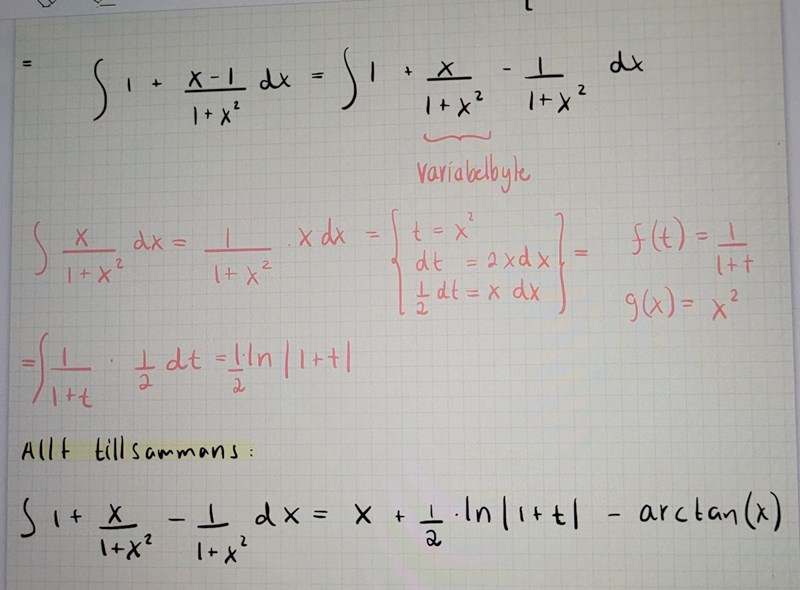 = ∫ 1 + (x-1)/(1+x²) dx = ∫ 1 + x/(1+x²) - 1/(1+x²) dx
variabelbyte
∫ x/(1+x²) dx = 1/(1+x²) · x dx = { t = x² dt = 2xdx 1/2 dt = x dx } = f(t) = 1/(1+t) g(x) = x²
= ∫ 1/(1+t) · 1/2 dt = 1/2 · ln |1+t|
Allt tillsammans:
∫ 1 + x/(1+x²) - 1/(1+x²) dx = x + 1/2 · ln |1+t| - arctan(x)